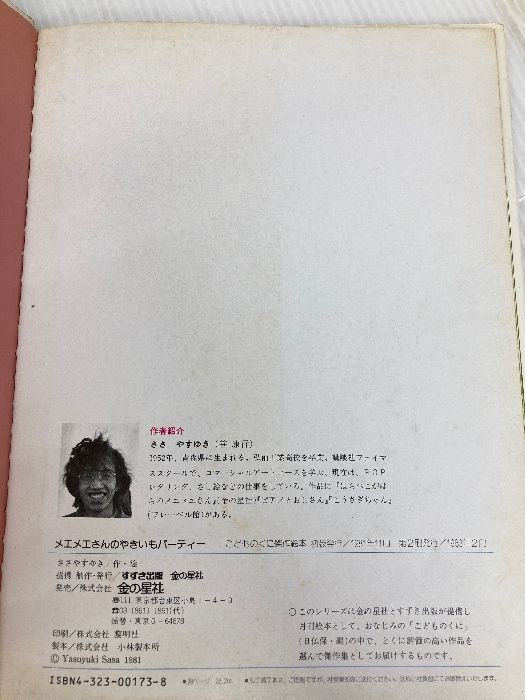 作者紹介
ささ やすゆき(笹 康行)
1952年、青森県に生まれる。弘前工業高校を卒業、講談社フェイマ
ススクールで、コマーシャルアート・コースを学ぶ。現在は、POP
レタリング、さし絵などの仕事をしている。作品に『はらぺこがは
らのメエメエさん』(金の星社)『ピアノとおじさん』『こうさぎちゃん』
(フレーベル館)がある。
メエメエさんのやきいもパーティー こどものくに傑作絵本 初版発行/1981年11月 第2刷発行/1983年2月
ささやすゆき/作・絵
提携 制作・発行/すずき出版 金の星社
発売/株式会社 金の星社
〒111 東京都台東区小島1-4-3
☎03(861)1861(代)
振替・東京0-64678
印刷/株式会社 黎明社
製本/株式会社 小林製本所
© Yasuyuki Sasa 1981
○このシリーズは金の星社とすずき出版が提携し
月刊絵本として、おなじみの「こどものくに」
(日仏保・編)の中で、とくに評価の高い作品を
選んで傑作集としてお届けするものです。
ISBN4-323-00173-8